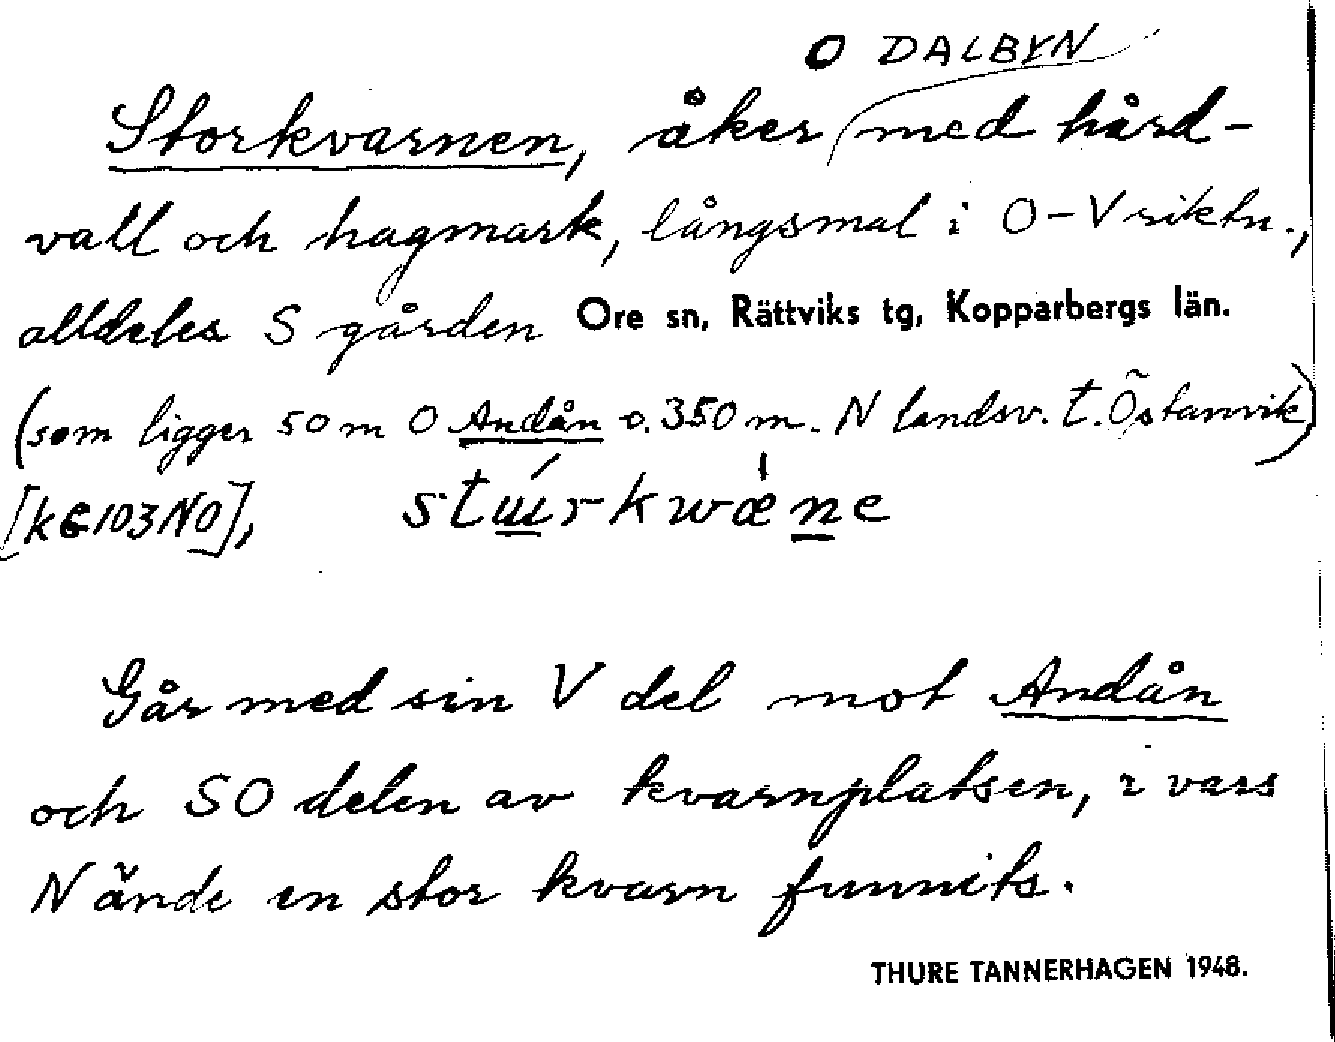 O DALBYN
Storkvarnen, åker med hård-
vall och hagmark, långsmal i O-V riktn.,
alldeles S gården Ore sn, Rättviks tg, Kopparbergs län.
(som ligger 50 m O Andån o. 350 m. N landsv. t. Östanvik)
[k6103NO], stúrkwǽne
Går med sin V del mot Andån
och SO delen av kvarnplatsen, i vars
N ände en stor kvarn funnits.
THURE TANNERHAGEN 1948.